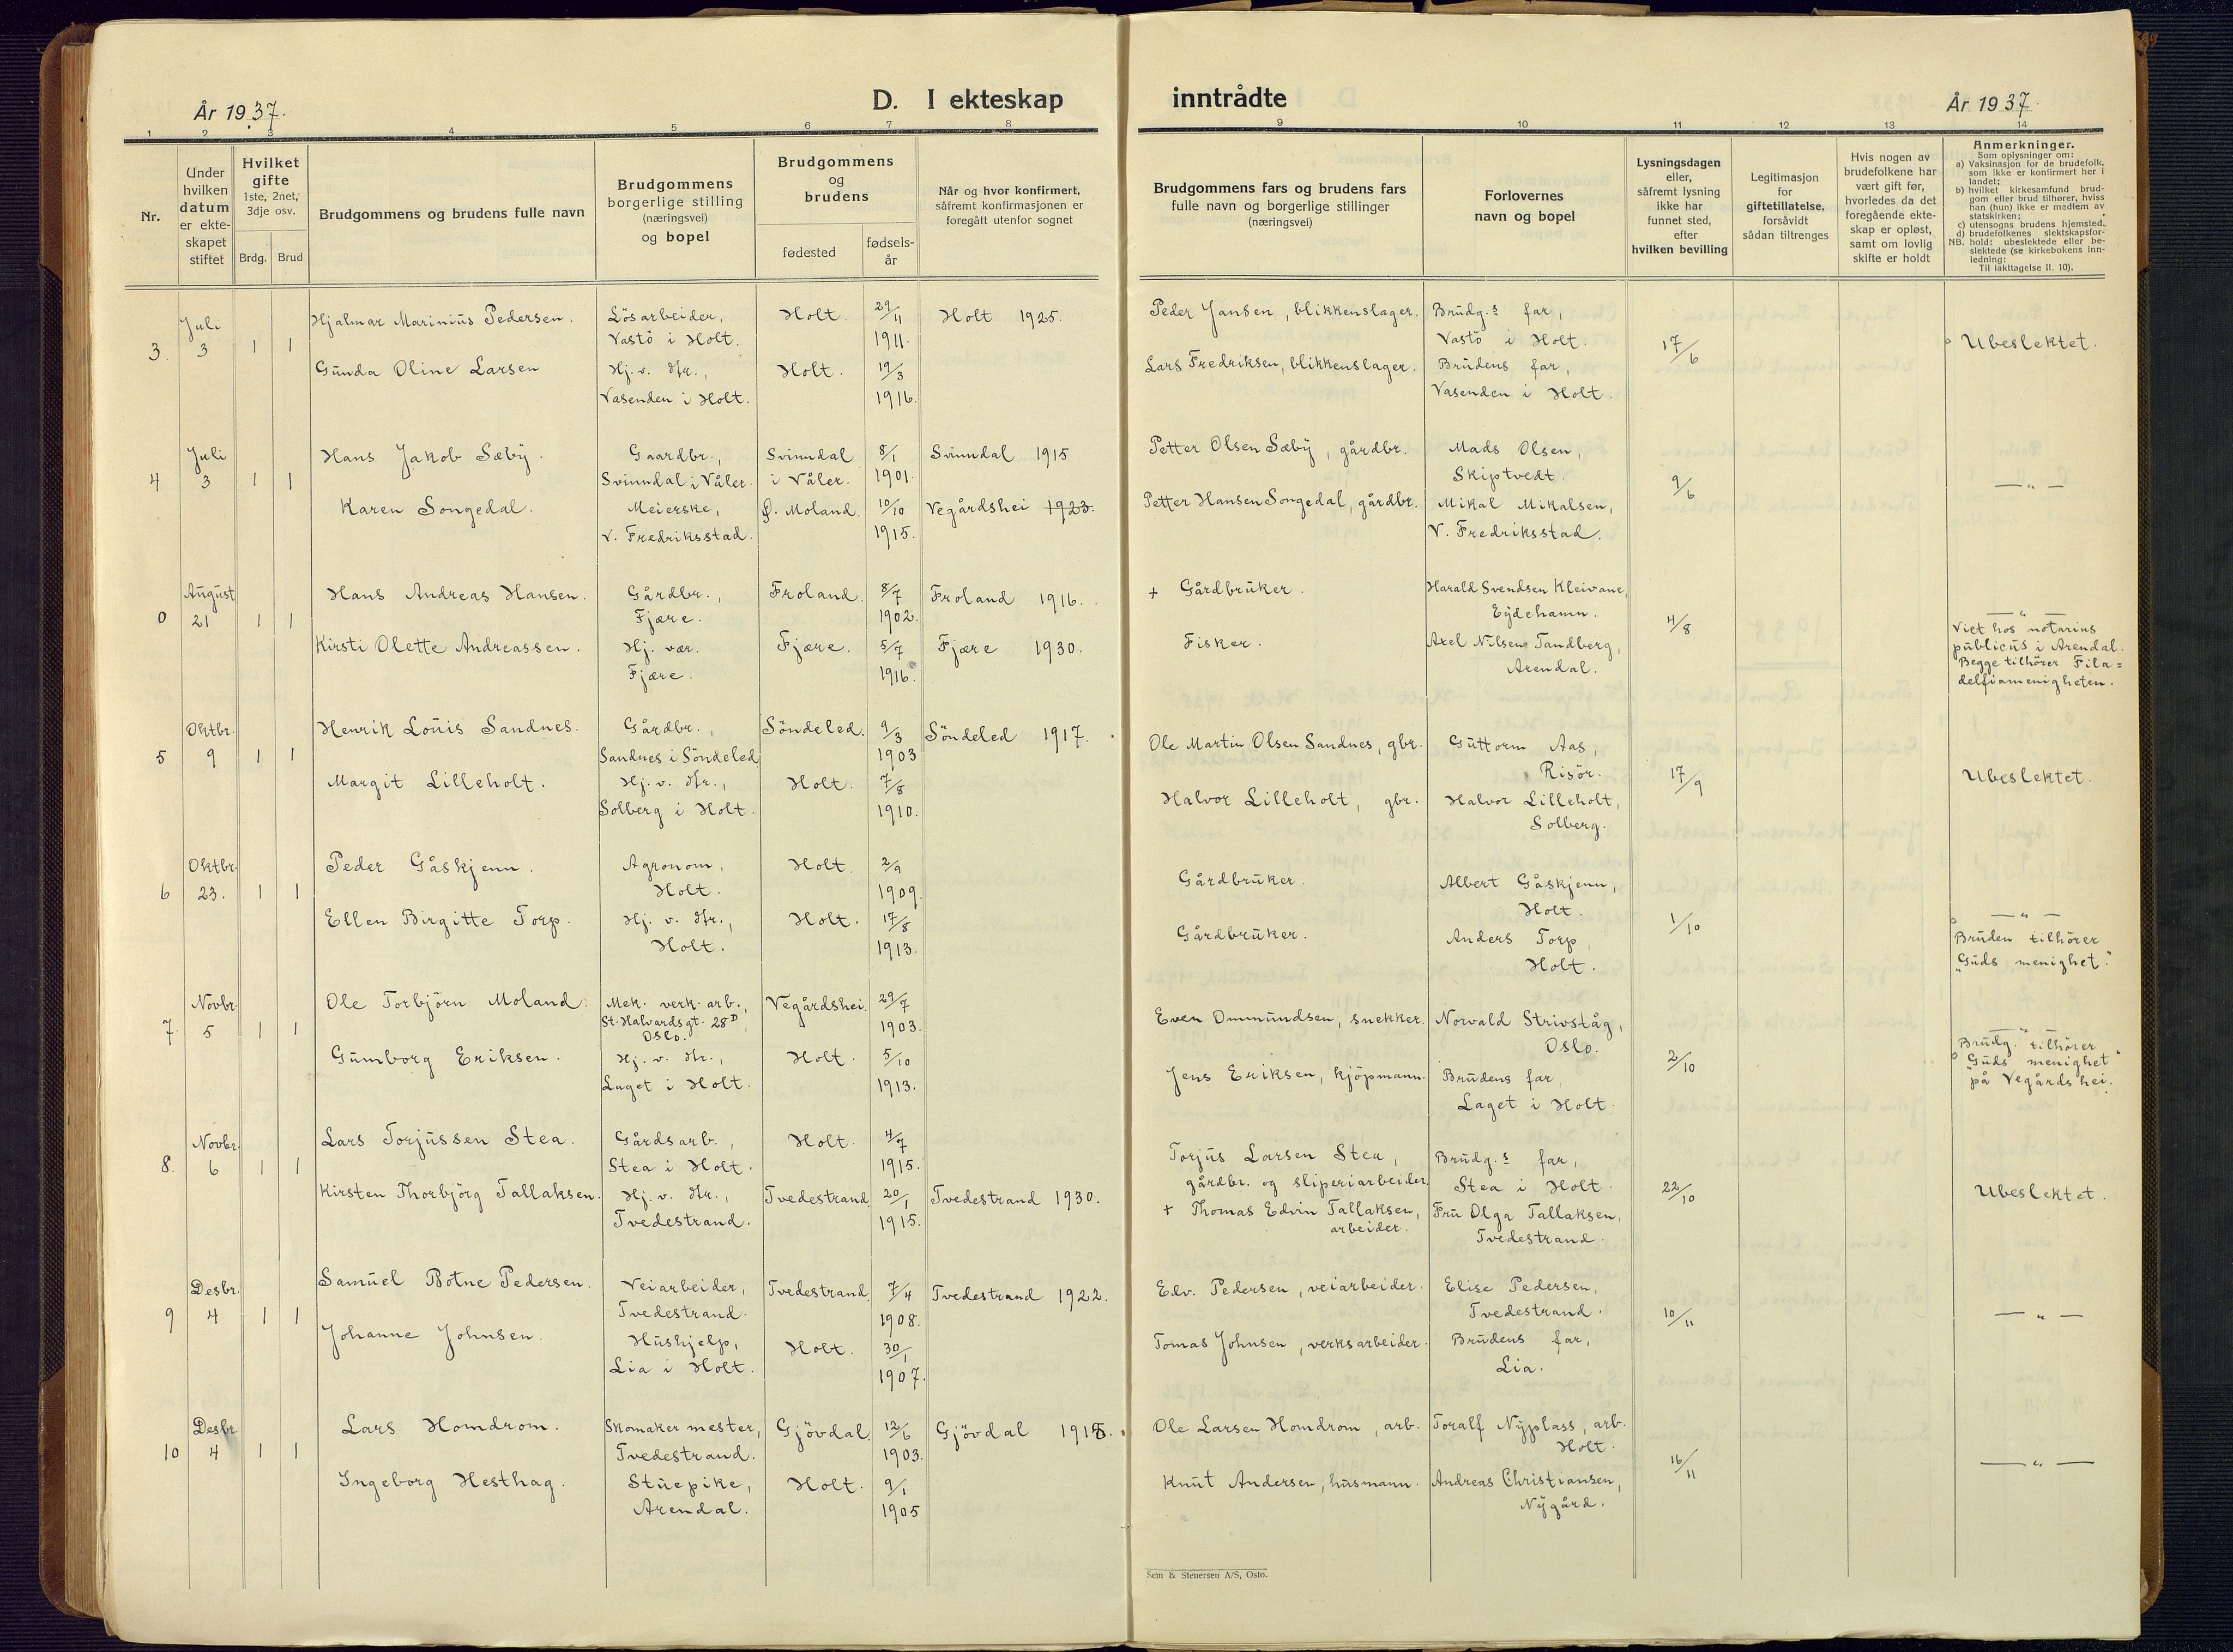 År 1937.
D. I ekteskap
inntrådte
År 1937.
1 2 3 4 5 6 7 8 9 10 11 12 13 14
Nr.
Under
hvilken
datum
er ekte-
skapet
stiftet
Hvilket
gifte
1ste, 2net,
3dje osv.
Brdg. Brud
Brudgommens og brudens fulle navn
Brudgommens
borgerlige stilling
(næringsvei)
og bopel
Brudgommens
og
brudens
fødested
fødsels-
år
Når og hvor konfirmert,
såfremt konfirmasjonen er
foregått utenfor sognet
Brudgommens fars og brudens fars
fulle navn og borgerlige stillinger
(næringsvei)
Forlovernes
navn og bopel
Lysningsdagen
eller,
såfremt lysning
ikke har
funnet sted,
efter
hvilken bevilling
Legitimasjon
for
giftetillatelse,
forsåvidt
sådan tiltrenges
Hvis nogen av
brudefolkene har
vært gift før,
hvorledes da det
foregående ekte-
skap er opløst,
samt om lovlig
skifte er holdt
Anmerkninger.
Som oplysninger om:
a) Vaksinasjon for de brudefolk,
som ikke er konfirmert her i
landet;
b) hvilket kirkesamfund brud-
gom eller brud tilhører, hviss
han (hun) ikke er medlem av
statskirken;
c) utensogns brudens hjemsted.
d) brudefolkenes slektskapsfor-
NB. hold: ubeslektede eller be-
slektede (se kirkebokens inn-
ledning:
Til iakttagelse II. 10).
3. Juli 3 1 1
Hjalmar Marinius Pedersen. Lösarbeider, Holt. 29/11 Holt 1925. Peder Jansen, blikkenslager. Brudg.s far,
Vastö i Holt. 1911. Vastö i Holt. 17/6 Ubeslektet.
Gunda Oline Larsen Hj. v. Hr., Holt. 19/3 Lars Fredriksen, blikkenslager. Brudens far,
Vasenden i Holt. 1916. Vasenden i Holt.
4 Juli 3 1 1
Hans Jakob Sæby. Gaardbr., Svinndal 8/1 Svinndal 1915 Petter Olsen Sæby, gårdbr. Mads Olsen,
Svinndal i Våler. i Våler. 1901. Skiptvedt. 9/6 — " —
Karen Songedal. Meierske, Ø. Moland. 10/10 Vegårdshei 1923. Petter Hansen Songedal, gårdbr. Mikal Mikalsen,
V. Fredriksstad. 1915. V. Fredriksstad.
0 August 21 1 1
Hans Andreas Hansen. Gårdbr., Froland. 8/7 Froland 1916. + Gårdbruker. Harald Svendsen Kleivane,
Fjære. 1902. Eydehamn. 4/8 — " —
Kirsti Olette Andreassen. Hj. vær. Fjære. 5/7 Fjære 1930. Fisker. Axel Nilsen Tandberg,
Fjære. 1916. Arendal.
Viet hos notarius
publicus i Arendal.
Begge tilhører Fila=
delfiamenigheten.
5 Oktbr. 9 1 1
Henrik Louis Sandnes. Gårdbr., Söndeled. 9/3 Söndeled 1917. Ole Martin Olsen Sandnes, gbr. Guttorm Aas,
Sandnes i Söndeled 1903 Risör. 17/9 Ubeslektet.
Margit Lilleholt. Hj. v. Hr., Holt. 7/8 Halvor Lilleholt, gbr. Halvor Lilleholt,
Solberg i Holt. 1910. Solberg.
6 Oktbr. 23. 1 1
Peder Gåskjenn. Agronom, Holt. 2/9 Gårdbruker. Albert Gåskjenn,
Holt. 1909. Holt. 1/10 — " —
Ellen Birgitte Torp. Hj. v. Hr., Holt. 17/8 Gårdbruker. Anders Torp,
Holt. 1913. Holt.
Bruden tilhörer
"Guds menighet."
7. Novbr. 5 1 1
Ole Torbjörn Moland. Mek. verk. arb., Vegårdshei 29/7 Even Ommundsen, snekker. Norvald Strivståg,
St. Halvardsgt. 28D, 1903. Oslo.
Oslo.
Gumborg Eriksen. Hj. v. Hr., Holt. 5/10 Jens Eriksen, kjöpmann. Brudens far, 2/10
Laget i Holt. 1913. Laget i Holt.
— " —
Brudg. tilhörer
"Guds menighet"
på Vegårdshei.
8. Novbr. 6 1 1
Lars Torjussen Stea. Gårdsarb., Holt. 4/7 Torjus Larsen Stea, Brudg.s far,
Stea i Holt. 1915. gårdbr. og sliperiarbeider Stea i Holt. 22/10 Ubeslektet.
Kirsten Thorbjörg Tallaksen. Hj. v. Hr., Tvedestrand 20/1 Tvedestrand 1930. + Thomas Edvin Tallaksen, Fru Olga Tallaksen,
Tvedestrand. 1915. arbeider. Tvedestrand.
9 Desbr. 4 1 1
Samuel Botne Pedersen. Veiarbeider, Tvedestrand. 7/4 Tvedestrand 1922. Edv. Pedersen, veiarbeider. Elise Pedersen,
Tvedestrand. 1908. Tvedestrand. 10/11 — " —
Johanne Johnsen. Hushjelp, Holt. 30/1 Tomas Johnsen, verksarbeider. Brudens far,
Lia i Holt. 1907. Lia.
10 Desbr. 4 1 1
Lars Homdrom. Skomakermester, Gjövdal. 12/6 Gjövdal Ole Larsen Homdrom, arb. Toralf Nyplass, arb.
Tvedestrand. 1903. Holt. 16/11 — " —
Ingeborg Hesthag. Stuepike, Holt. 9/1 Knut Andersen, husmann. Andreas Christiansen,
Arendal. 1905 Nygård.
Sem & Stenersen A/S, Oslo.